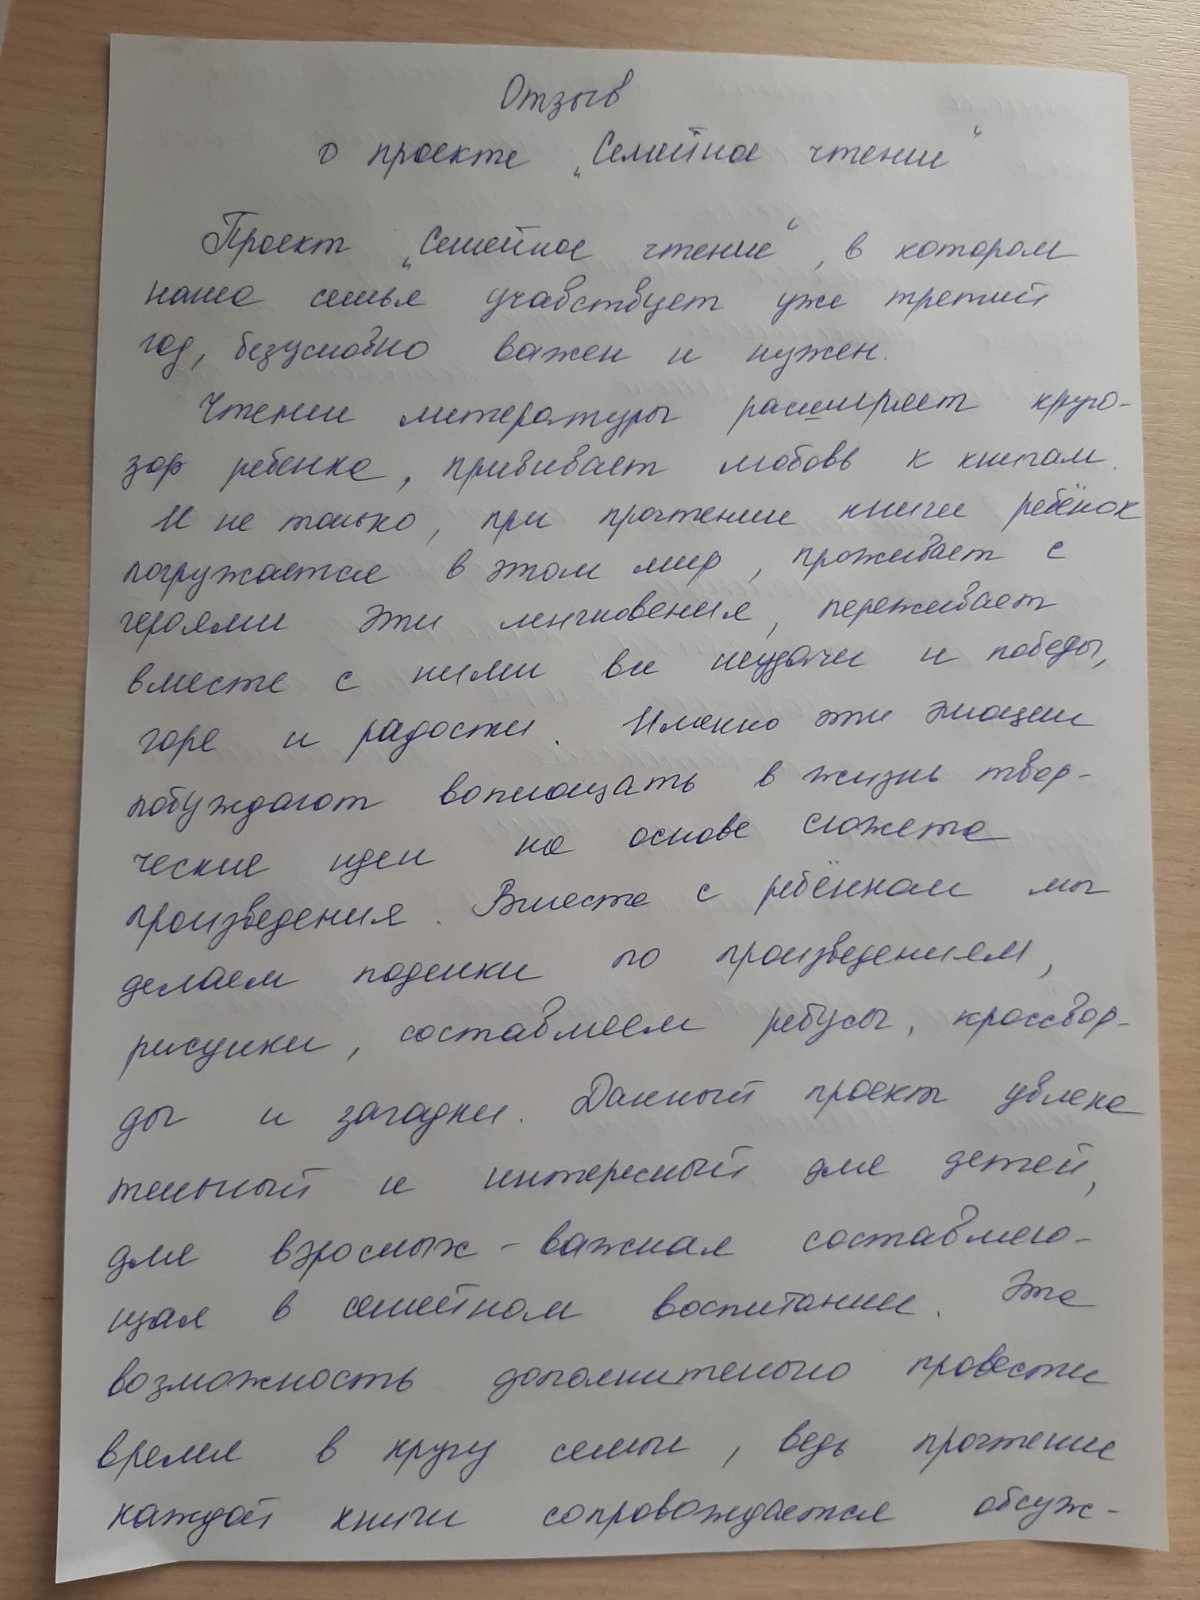 Отзыв
о проекте „Семейное чтение"
Проект „Семейное чтение", в котором
наша семья учавствует уже третий
год, безусловно важен и нужен.
Чтение литературы расширяет круго-
зор ребенка, прививает любовь к книгам.
И не только, при прочтении книги ребёнок
погружается в этом мир, проживает с
героями эти мгновения, переживает
вместе с ними все неудачи и победы,
горе и радости. Именно эти эмоции
побуждают воплощать в жизнь твор-
ческие идеи на основе сюжета
произведения. Вместе с ребёнком мы
делаем поделки по произведениям,
рисунки, составляем ребусы, кроссвор-
ды и загадки. Данный проект увлека
тельный и интересный для детей,
для взрослых - важная составляю-
щая в семейном воспитании. Это
возможность дополнительно провести
время в кругу семьи, ведь прочтение
каждой книги сопровождается обсуж-